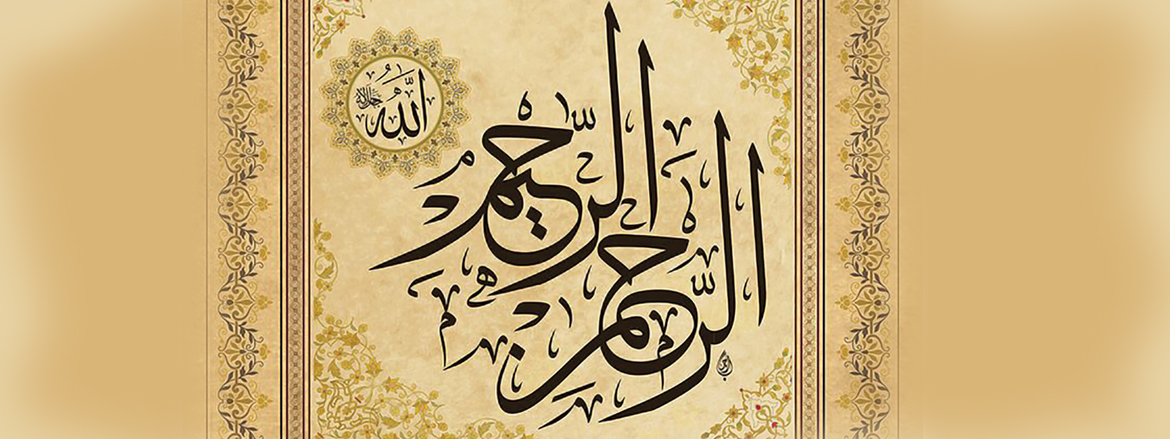 الله جل جلاله
الرحمن الرحيم